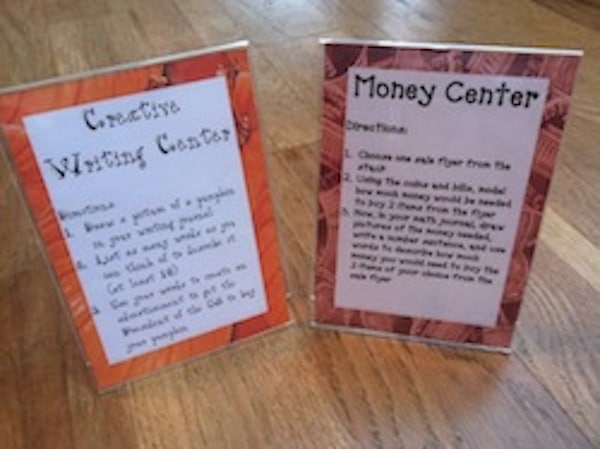 Creative
Writing Center
Directions:
1. Draw a picture of a pumpkin
in your writing journal
2. List as many words as you
can think of to describe it
(at least 10)
3. Use your words to create an
advertisement to get the
of the to buy
your pumpkin
Money Center
Directions:
1. Choose one sale flyer from the
stack
2. Using the coins and bills, model
how much money would be needed
to buy 2 items from the flyer
3. Now, in your math journal, draw
pictures of the money needed,
write a number sentence, and use
words to describe how much
money you would need to buy the
2 items of your choice from the
sale flyer